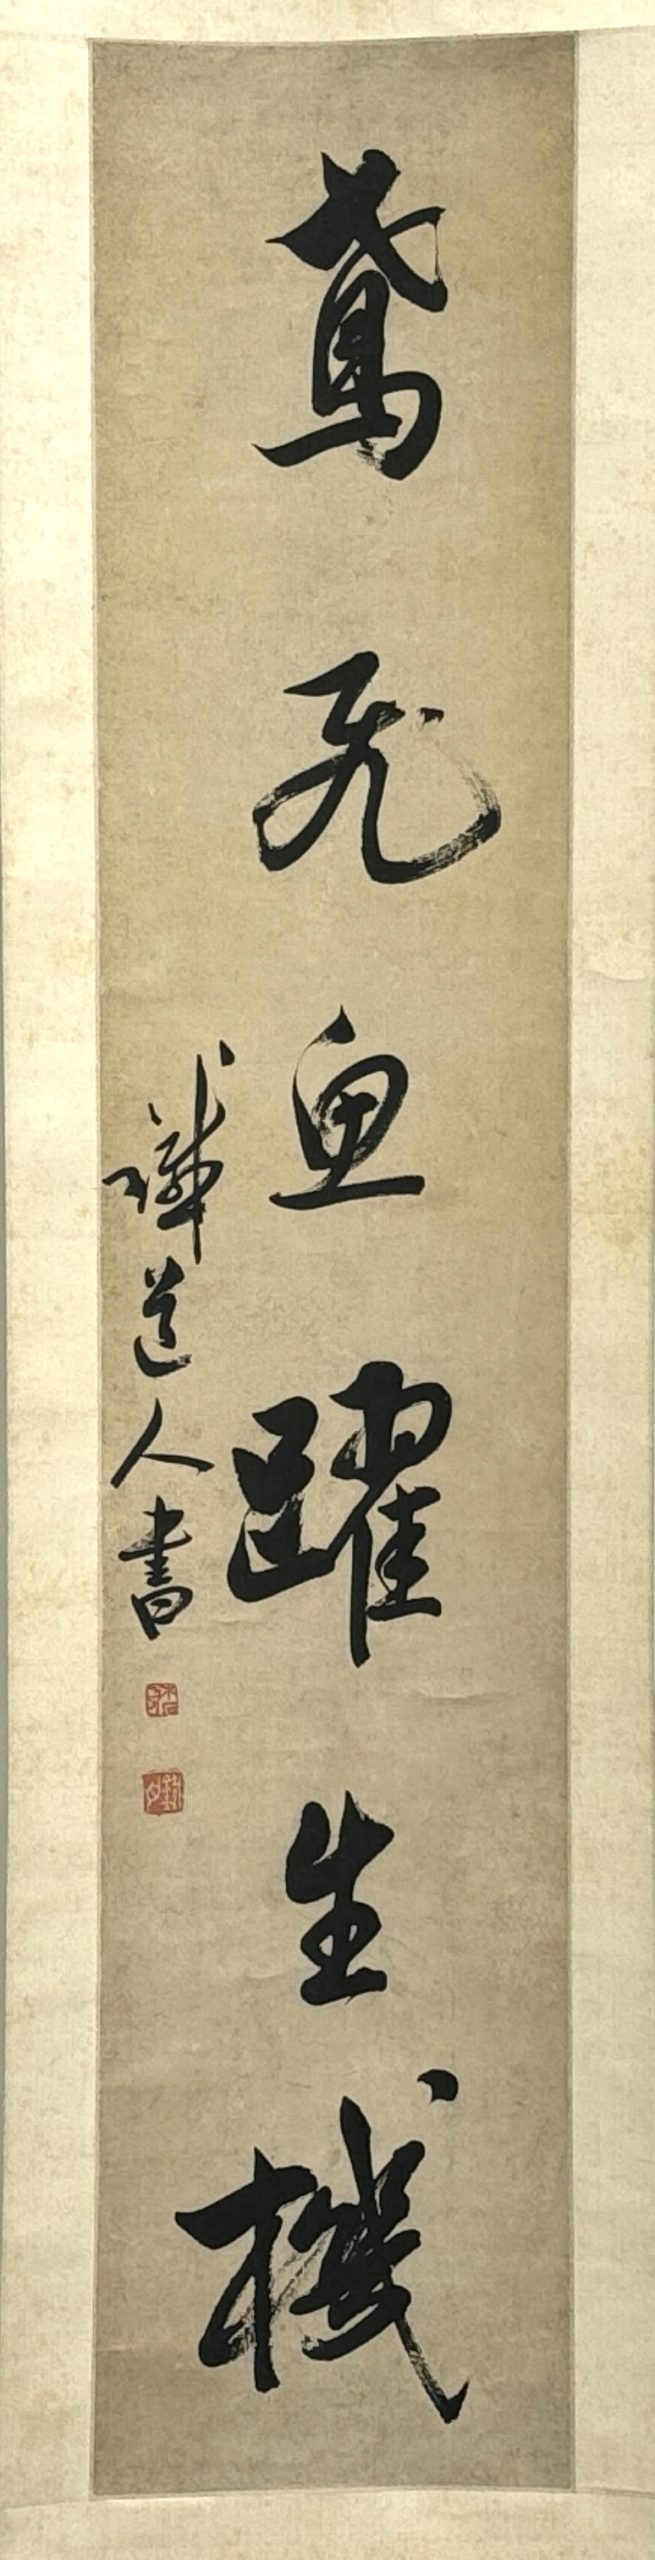 鳶飛魚躍生機
道人書